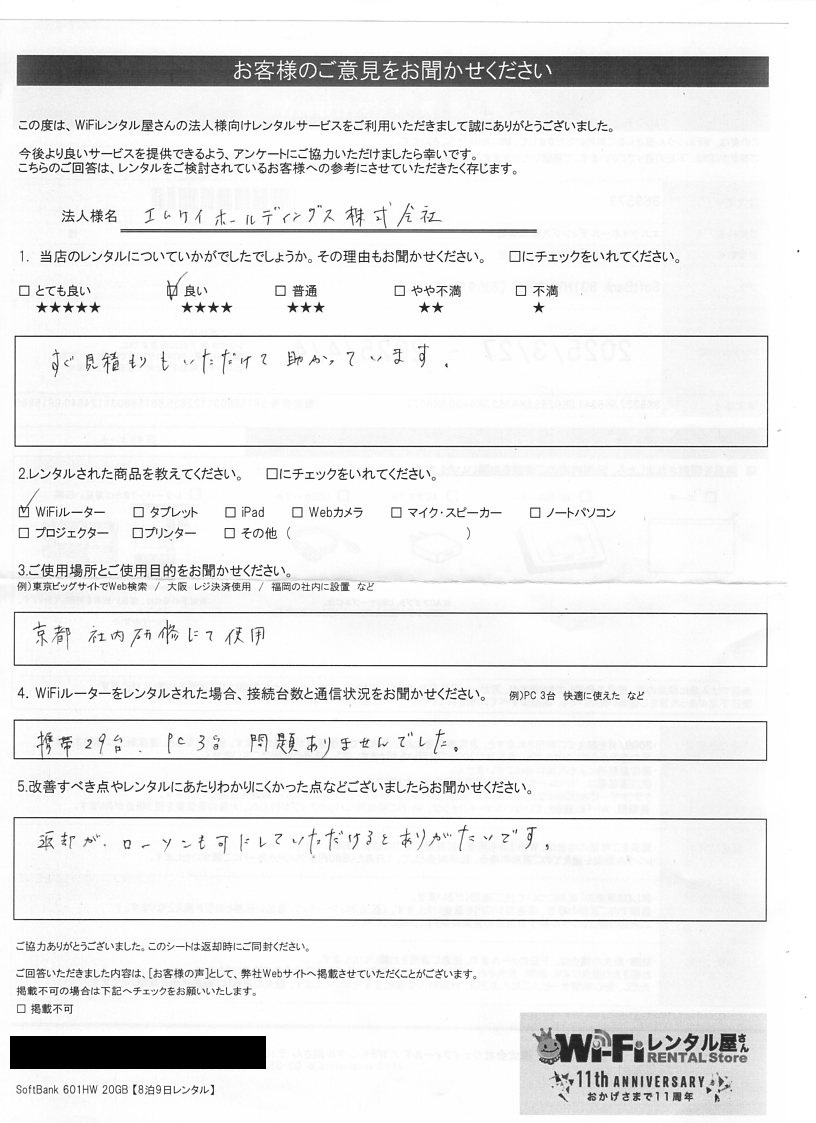 お客様のご意見をお聞かせください
この度は、WiFiレンタル屋さんの法人様向けレンタルサービスをご利用いただきまして誠にありがとうございました。
今後より良いサービスを提供できるよう、アンケートにご協力いただけましたら幸いです。
こちらのご回答は、レンタルをご検討されているお客様への参考にさせていただきたく存じます。
法人様名 エムケイホールディングス株式会社
1. 当店のレンタルについていかがでしたでしょうか。その理由もお聞かせください。 □にチェックをいれてください。
□ とても良い ☑ 良い □ 普通 □ やや不満 □ 不満
★★★★★ ★★★★ ★★★ ★★ ★
すぐ見積もりもいただけて助かっています。
2.レンタルされた商品を教えてください。 □にチェックをいれてください。
☑ WiFiルーター □ タブレット □ iPad □ Webカメラ □ マイク・スピーカー □ ノートパソコン
□ プロジェクター □プリンター □ その他 ( )
3.ご使用場所とご使用目的をお聞かせください。
例)東京ビッグサイトでWeb検索 / 大阪 レジ決済使用 / 福岡の社内に設置 など
京都 社内研修にて使用
4. WiFiルーターをレンタルされた場合、接続台数と通信状況をお聞かせください。 例)PC 3台 快適に使えた など
携帯29台. PC 3台 問題ありませんでした。
5.改善すべき点やレンタルにあたりわかりにくかった点などございましたらお聞かせください。
返却が、ローソンも可にしていただけるとありがたいです。
ご協力ありがとうございました。このシートは返却時にご同封ください。
ご回答いただきました内容は、[お客様の声]として、弊社Webサイトへ掲載させていただくことがございます。
掲載不可の場合は下記へチェックをお願いいたします。
□ 掲載不可
SoftBank 601HW 20GB【8泊9日レンタル】
Wi-Fiレンタル屋さん
RENTAL Store
11th ANNIVERSARY
おかげさまで11周年